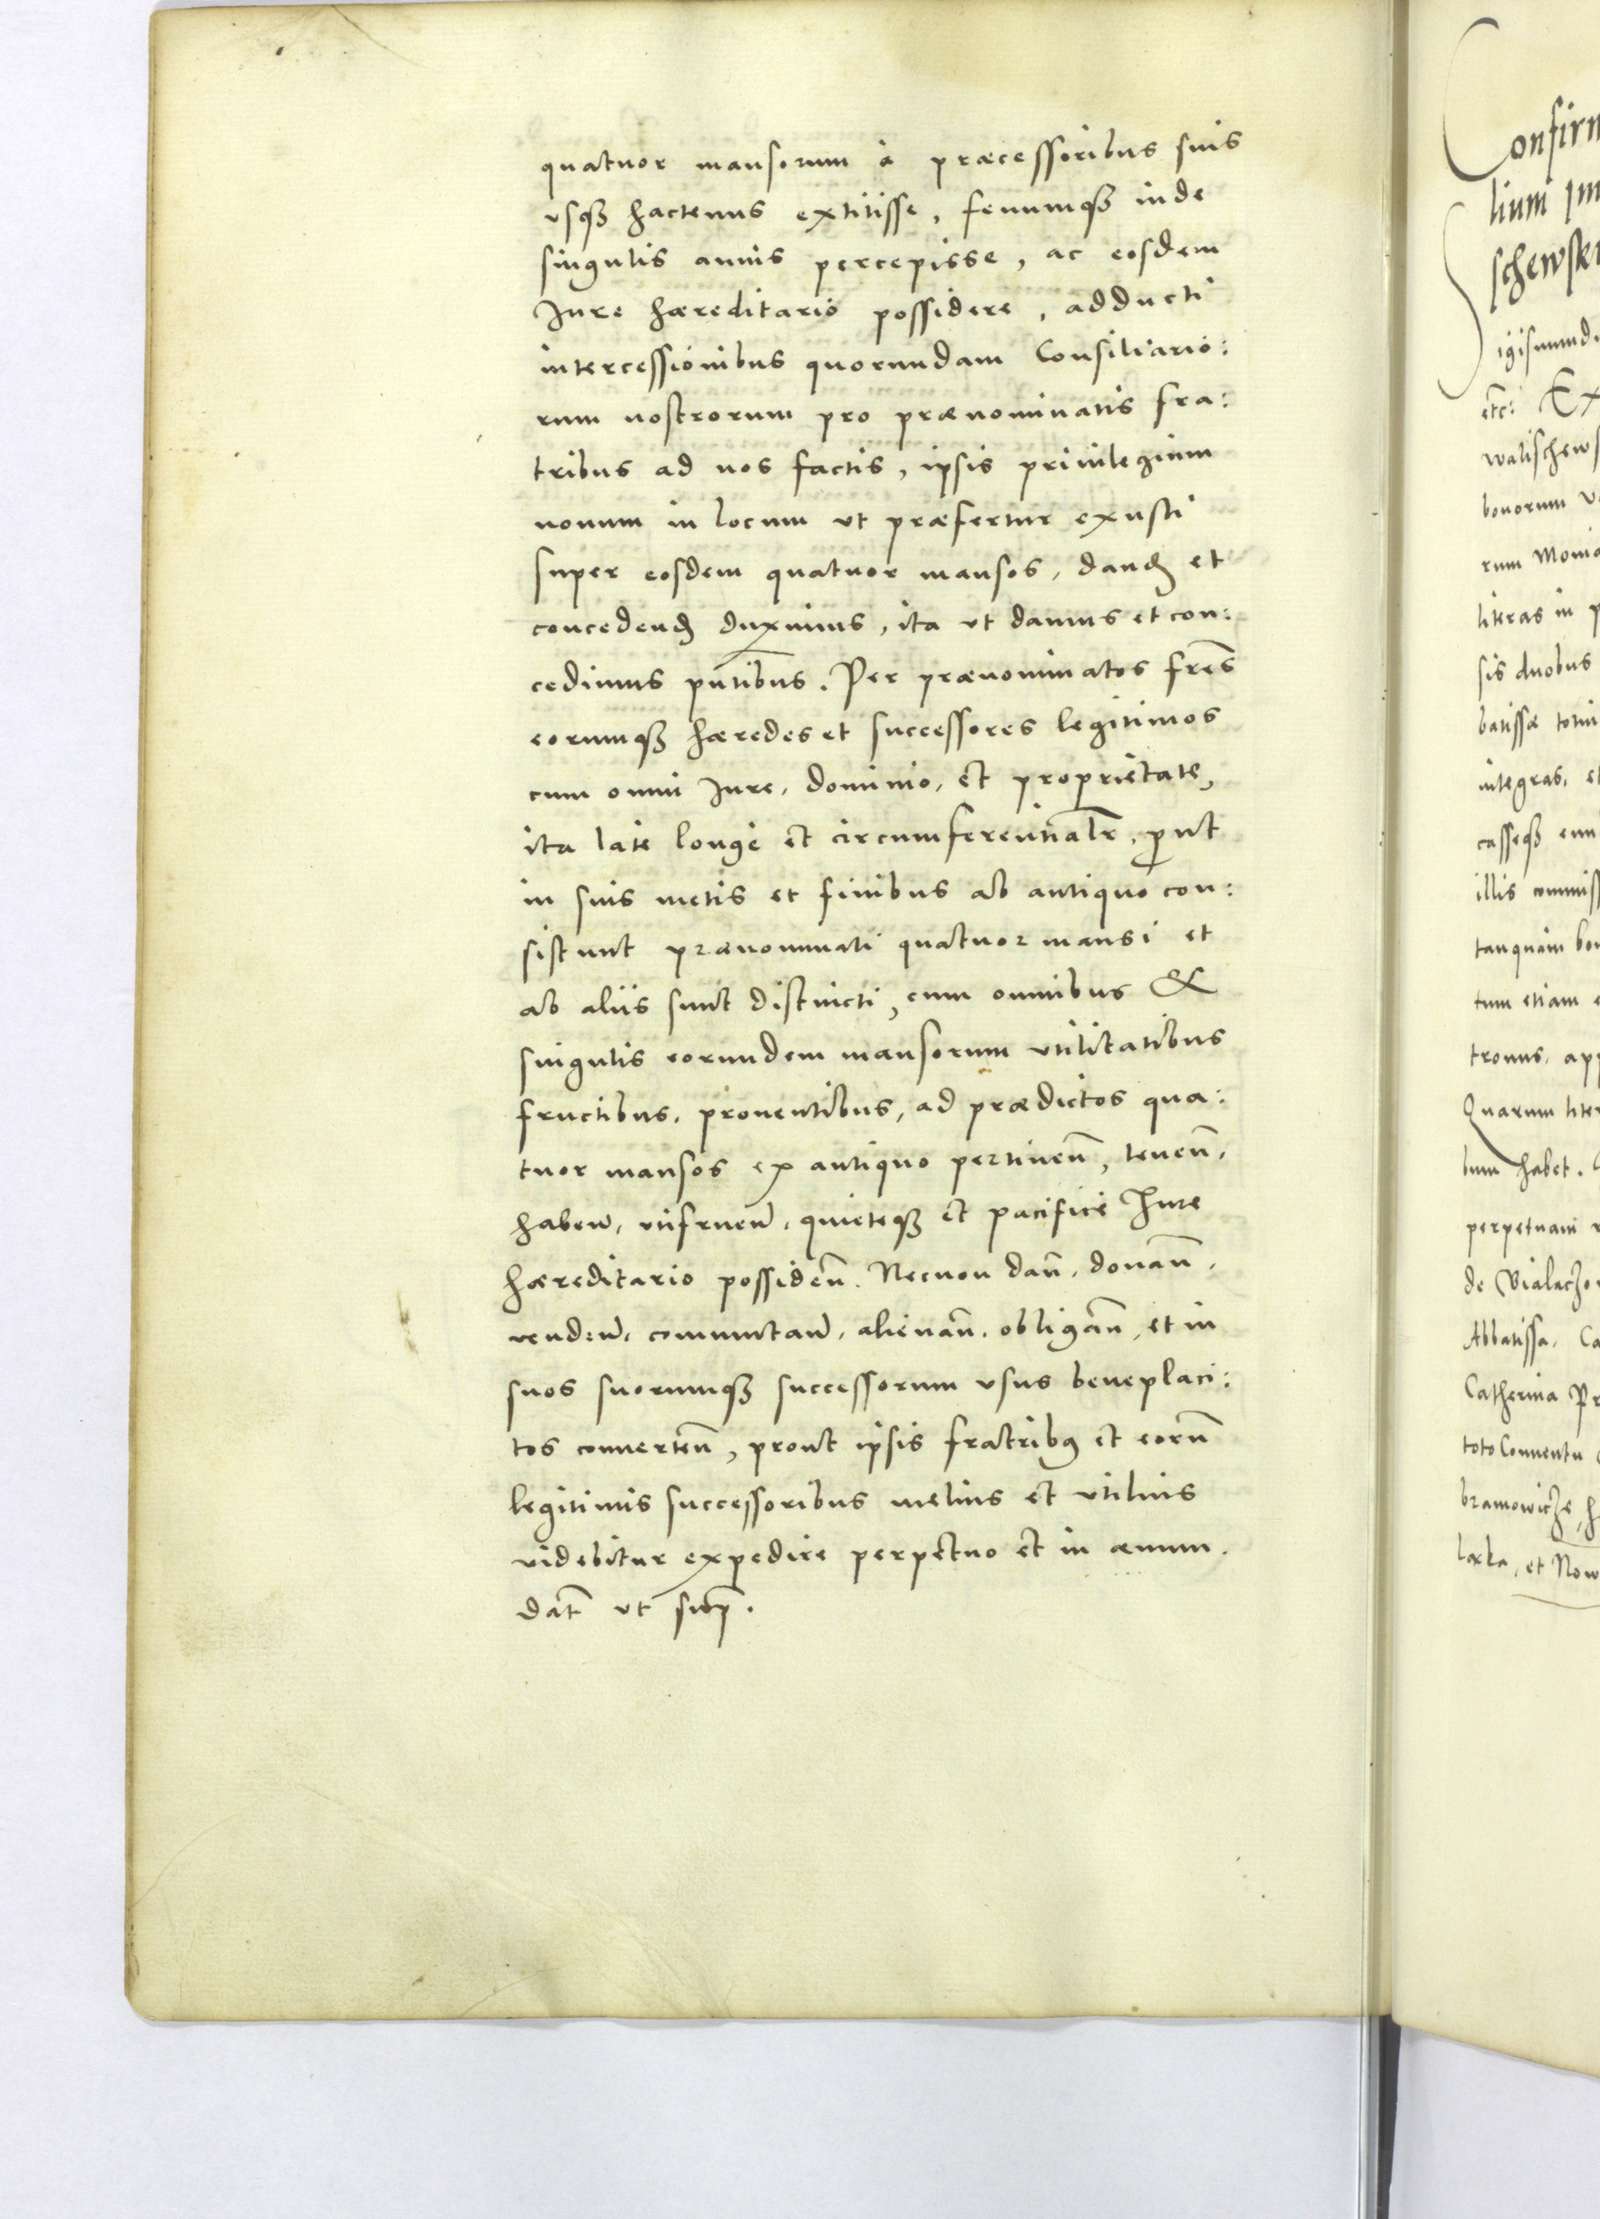 quatuor mansorum à præcessoribus suis
vsqȝ hactenus extitisse, fenumqȝ inde
singulis annis percepisse, ac eosdem
Jure hæreditario possidere, adducti
intercessionibus quorundam Consiliario:
rum nostrorum pro prænominatis fra:
tribus ad nos factis, ipsis priuilegium
nouum in locum vt præfertur exusti
super eosdem quatuor mansos, dand et
concedend duximus, ita vt damus et con:
cedimus pn̄tibus. Per prænominatos fr̄es
eorumqȝ hæredes et successores legitimos
cum omni Jure, dominio, et proprietate,
ita late longe et circumferentialr̄, prout
in suis metis et finibus ab antiquo con:
sistunt prænominati quatuor mansi et
ab aliis sunt distincti, cum omnibus &
singulis eorundem mansorum vtilitatibus
fructibus, prouentibus, ad prædictos qua:
tuor mansos ex antiquo pertinen̄, tenen̄,
haben̄, vtifruen̄, quieteqȝ et pacifice Jure
hæreditario possiden̄. Necnon dan̄, donan̄,
venden̄, commutan̄, alienan̄, obligan̄, et in
suos suorumqȝ successorum vsus beneplaci:
tos conuerten̄, prout ipsis fratribꝰ et eorū
legitimis successoribus melius et vtilius
videbitur expedire perpetuo et in æuum.
dat̄ vt sup̄.
Confirm
lium Im
schewsk
Sigismund
etc: Ex
walischews
bonorum
rum Monia
literas in p
sis duobus
batissæ totiu
integras, et
casseqȝ
illis commiss
tanquam bon
tum etiam
tronus, app
Quarum liter
bum habet.
perpetuam
de Vialaczo
Abbatissa, Ca
Catherina Pr
toto Conuentu
bramowicze, h
læka, et Now